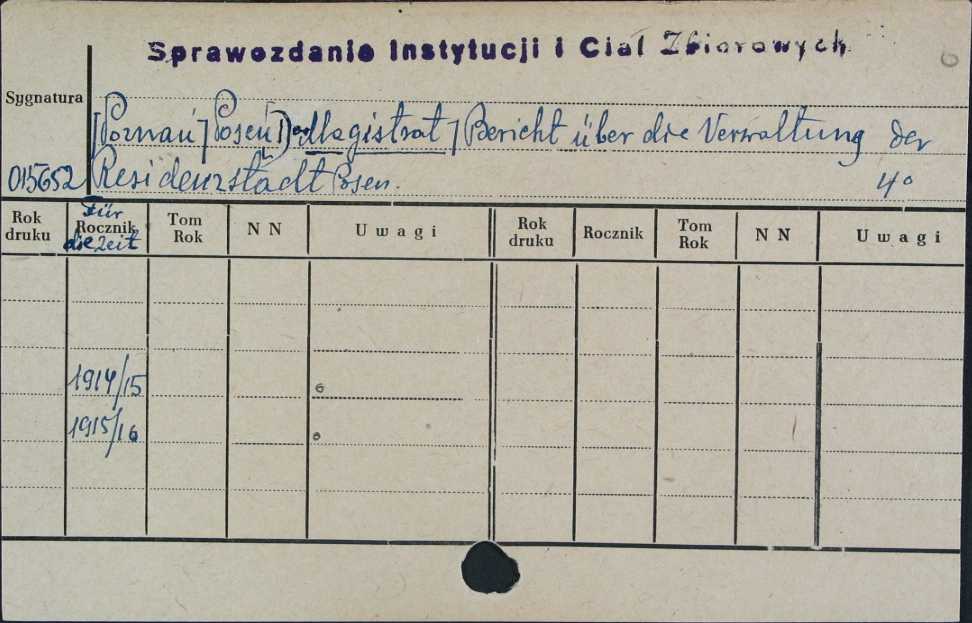 Sprawozdanie Instytucji i Ciał Zbiorowych
Sygnatura
[Poznań] Posen[!] Magistrat] Bericht über die Verwaltung der
015652 Residenzstadt Posen. 4°
für
Rok druku Rocznik Tom Rok N N Uwagi Rok druku Rocznik Tom Rok N N Uwagi
die Zeit
1914/15
1915/16